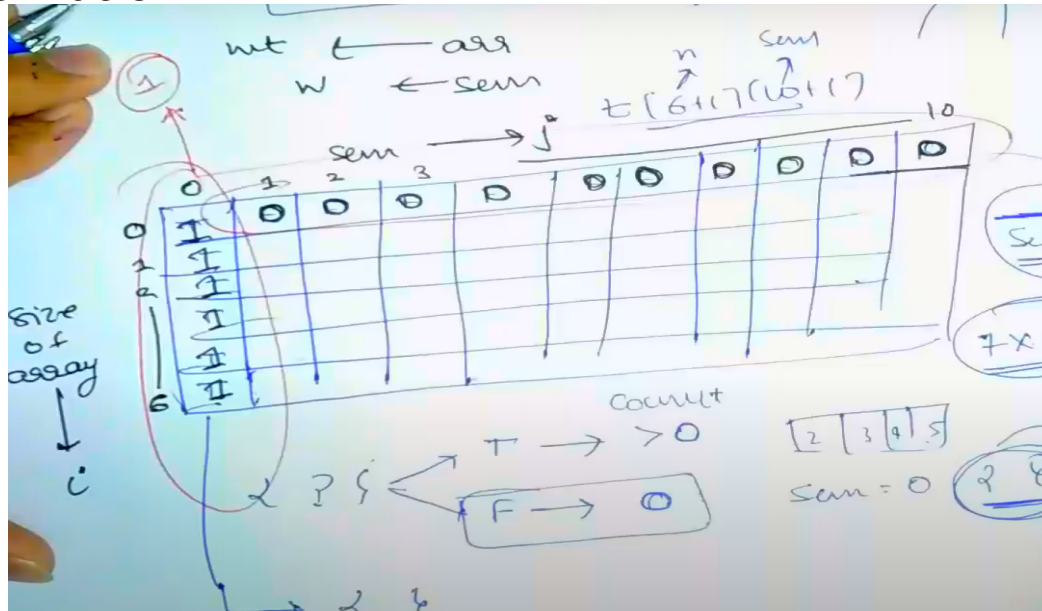 wt ← arr
w ← sum
n sum
t[6+1][10+1]
1
sum → j
0 1 2 3 10
0 1 0 0 0 0 0 0 0 0 0 0
1 1
2 1
1
1
6 1
size
of
array
↓
i
7x
Count
T → >0
{ } F → 0
2 3 4 5
sum = 0
{ }